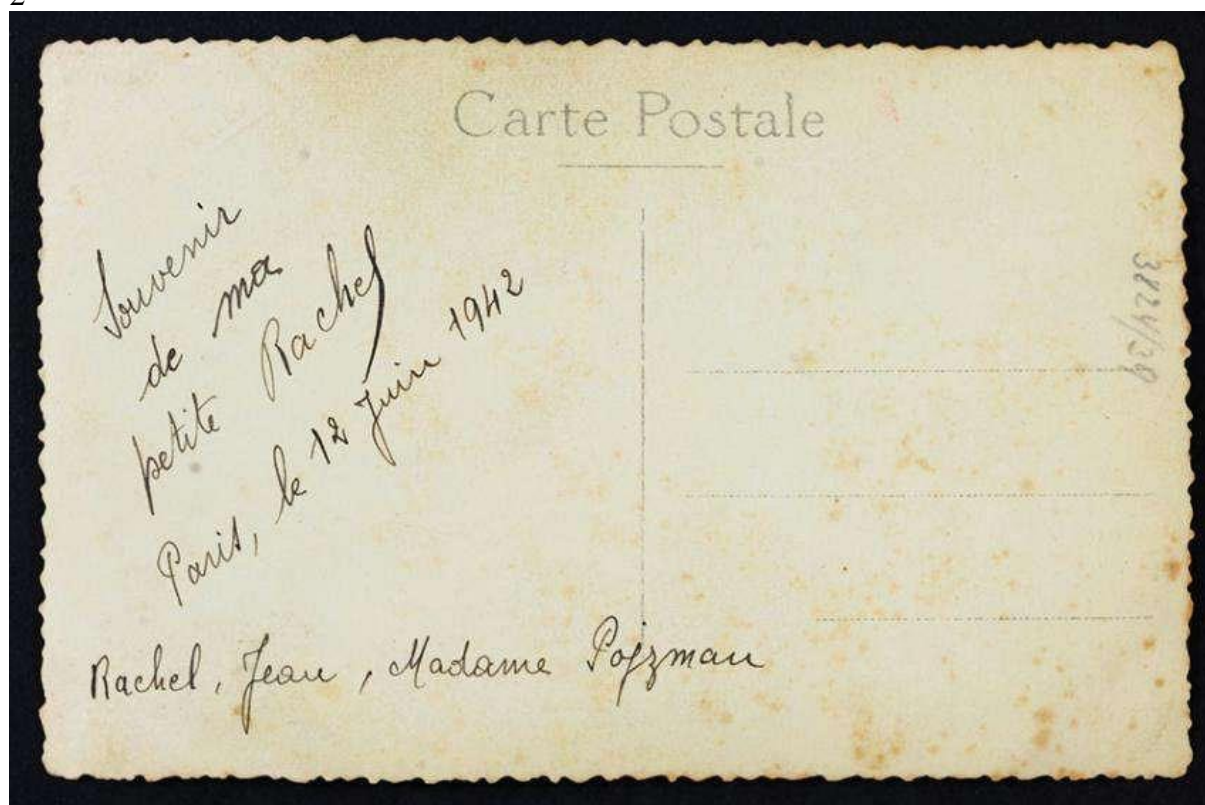 2
Carte Postale
Souvenir
de ma
petite Rachel
Paris, le 12 Juin 1942
3824/39
Rachel, Jean, Madame Pojzman